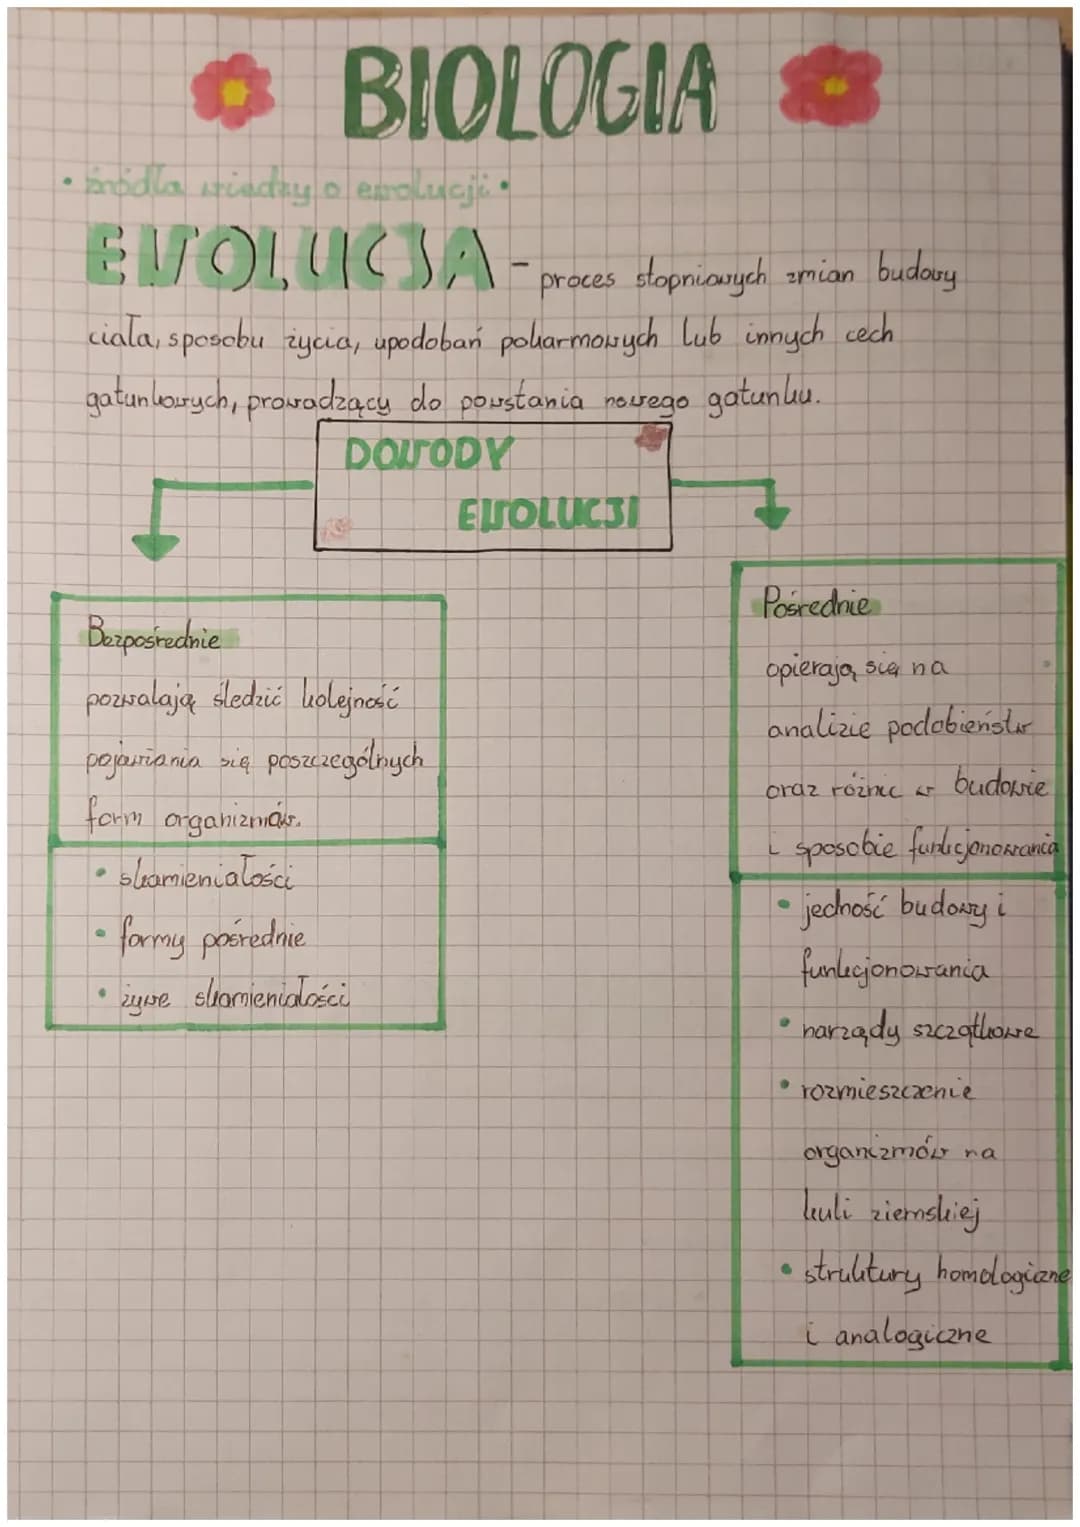 BIOLOGIA
• źródła wiedzy o ewolucji •
EWOLUCJA - proces stopniowych zmian budowy
ciała, sposobu życia, upodobań pokarmowych lub innych cech
gatunkowych, prowadzący do powstania nowego gatunku.
DOWODY
EWOLUCJI
Bezpośrednie
pozwalają śledzić kolejność
pojawiania się poszczególnych
form organizmów.
• skamieniałości
• formy pośrednie
• żywe skamieniałości
Pośrednie
opierają się na
analizie podobieństw
oraz różnic w budowie
i sposobie funkcjonowania
• jedność budowy i
funkcjonowania
• narządy szczątkowe
• rozmieszczenie
organizmów na
kuli ziemskiej
• struktury homologiczne
i analogiczne